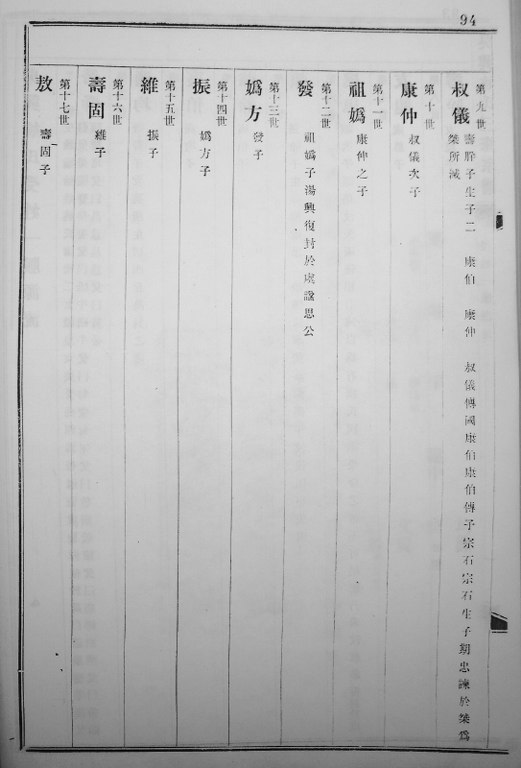 94
第九世
叔儀
壽幹子生子二 康伯 康仲 叔儀傳國康伯康伯傳子宗石宗石生子朝忠諫於桀爲
桀所滅
第十世
康仲
叔儀次子
第十一世
祖嬀
康仲之子
第十二世
發
祖嬀子湯興復封於虞諡思公
第十三世
嬀方
發子
第十四世
振
嬀方子
第十五世
維
振子
第十六世
壽固
維子
第十七世
敖
壽固子